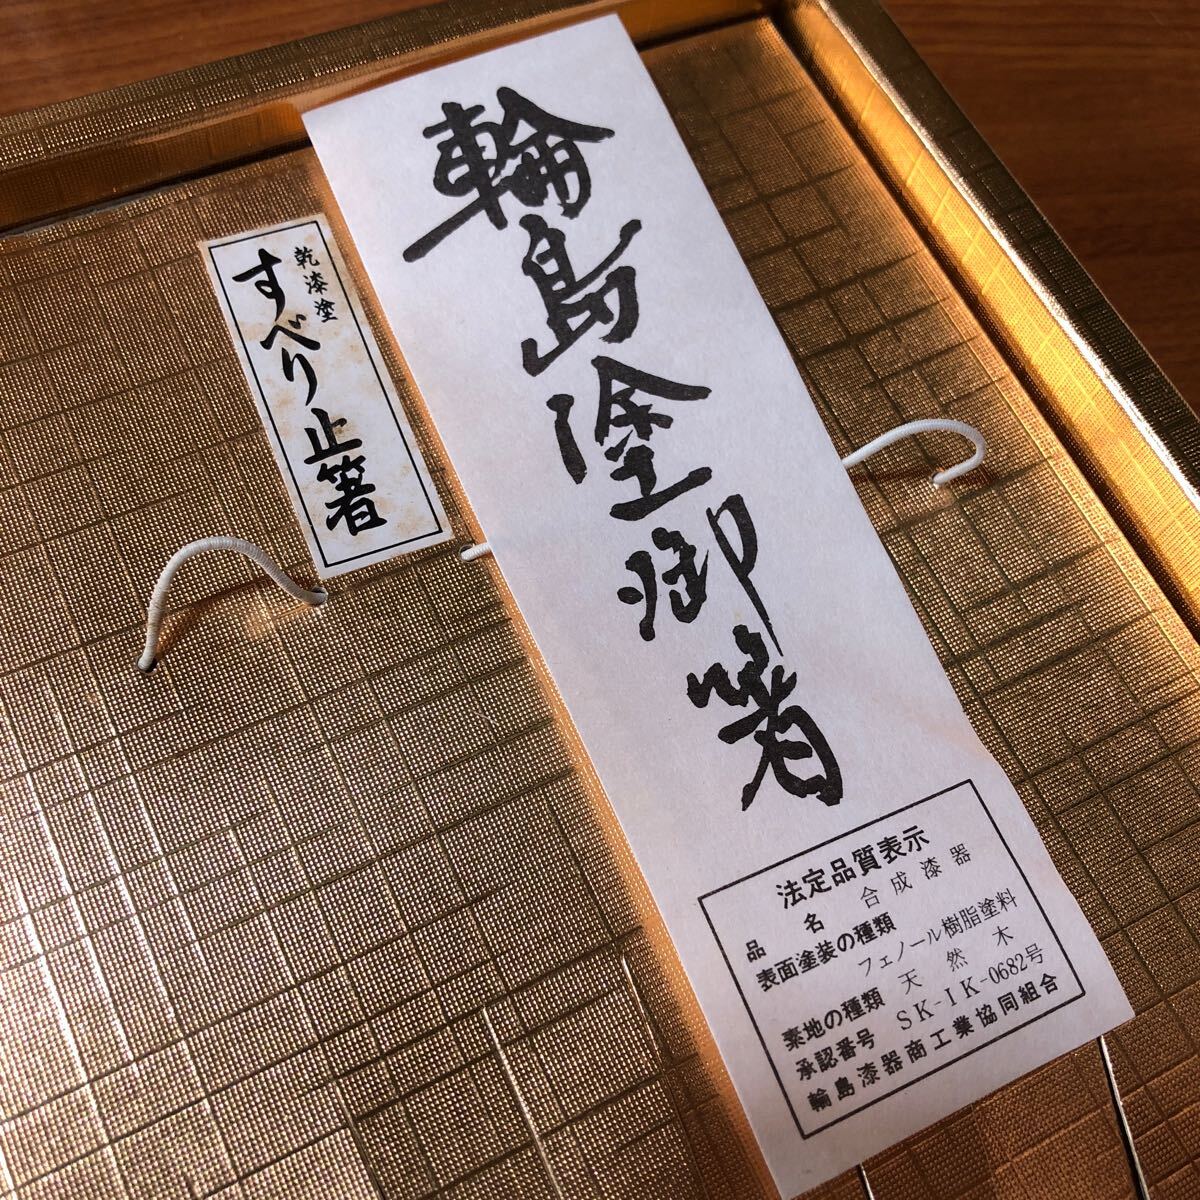 輪島塗御箸
乾漆塗
すべり止箸
法定品質表示
品名 合成漆器
表面塗装の種類
フェノール樹脂塗料
素地の種類 天然木
承認番号 SK-IK-0682号
輪島漆器商工業協同組合